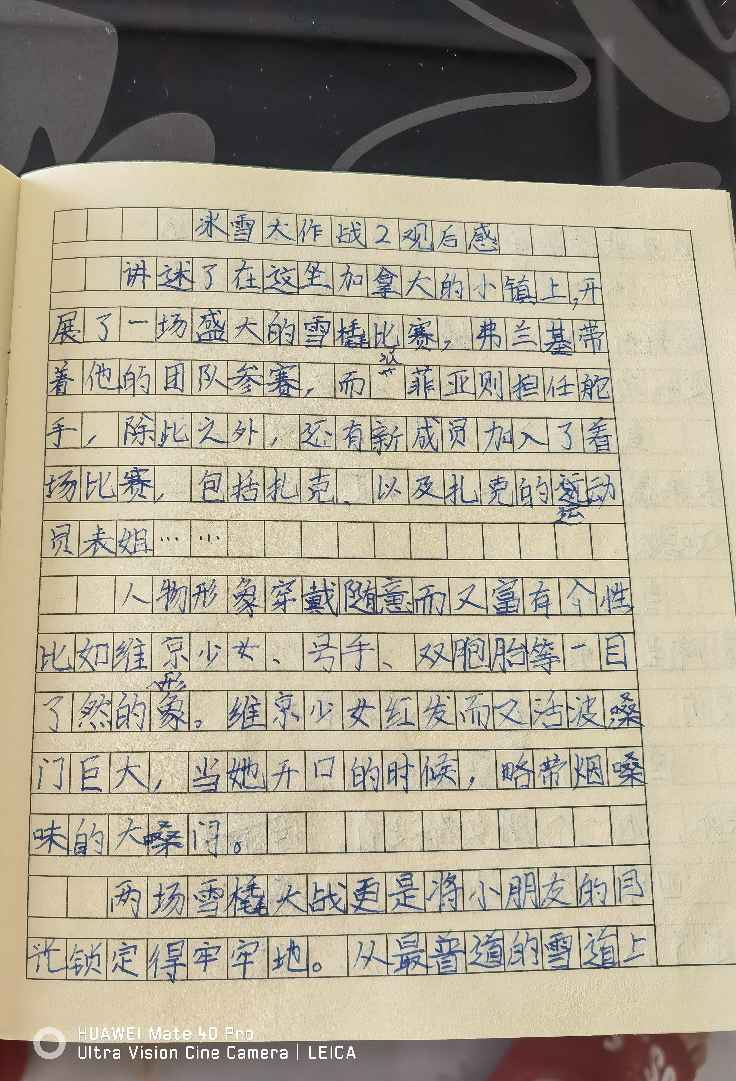 冰雪大作战2观后感
讲述了在这坐加拿大的小镇上,开
展了一场盛大的雪橇比赛，弗兰基带
着他的团队参赛，而菲亚则担任舵
手，除此之外，还有新成员加入了着
场比赛，包括扎克、以及扎克的运动
员表姐……
人物形象穿戴随意而又富有个性
比如维京少女、号手、双胞胎等一目
了然的形象。维京少女红发而又活波嗓
门巨大，当她开口的时候，略带烟嗓
味的大嗓门。
两场雪橇大战更是将小朋友的目
光锁定得牢牢地。从最普道的雪道上
HUAWEI Mate 40 Pro
Ultra Vision Cine Camera | LEICA